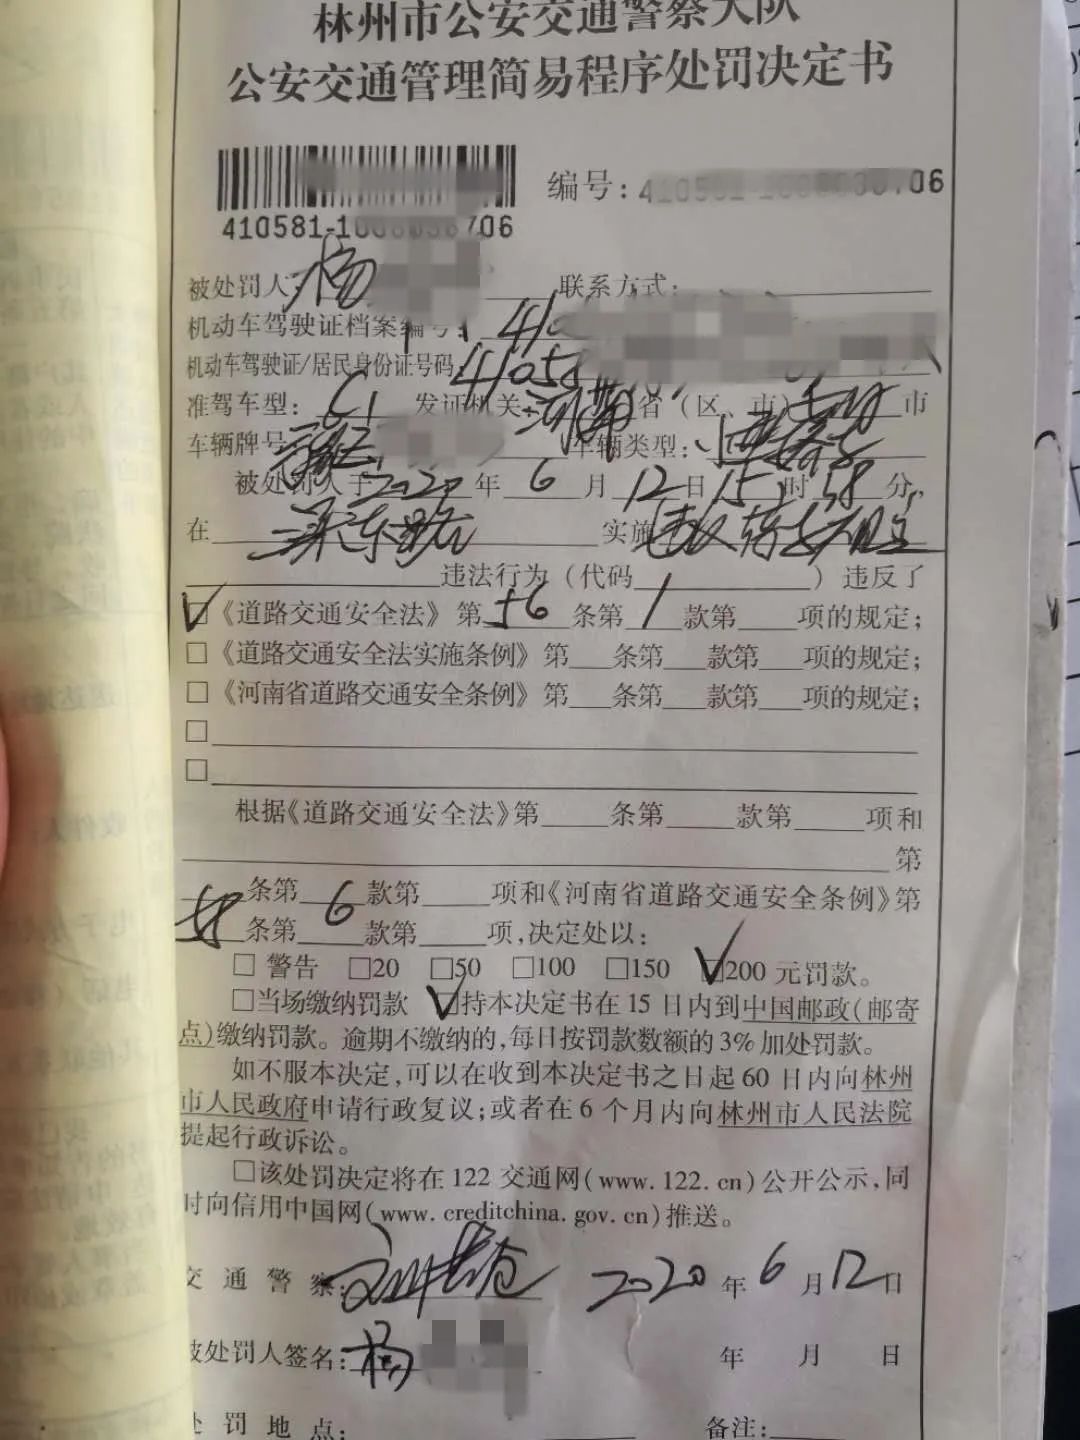 林州市公安交通警察大队
公安交通管理简易程序处罚决定书
编号: 410581-1 706
410581-1 706
被处罚人: 杨 联系方式:
机动车驾驶证档案编号: 410
机动车驾驶证/居民身份证号码: 41058
准驾车型: C1 发证机关: 河南 省(区、市) 市
车辆牌号 车辆类型:
被处罚人于 2020 年 6 月 12 日 15 时 58 分,
在 实施
违法行为(代码 )违反了
☑《道路交通安全法》第 56 条第 1 款第 项的规定;
□《道路交通安全法实施条例》第 条第 款第 项的规定;
□《河南省道路交通安全条例》第 条第 款第 项的规定;
□
□
根据《道路交通安全法》第 条第 款第 项和
第
条第 款第 项和《河南省道路交通安全条例》第
条第 6 款第 项,决定处以:
□ 警告 □20 □50 □100 □150 ☑200 元罚款。
□当场缴纳罚款 ☑持本决定书在 15 日内到中国邮政(邮寄
点)缴纳罚款。逾期不缴纳的,每日按罚款数额的 3% 加处罚款。
如不服本决定,可以在收到本决定书之日起 60 日内向林州
市人民政府申请行政复议;或者在 6 个月内向林州市人民法院
提起行政诉讼。
□该处罚决定将在 122 交通网(www.122.cn)公开公示,同
时向信用中国网(www.creditchina.gov.cn)推送。
交通警察: 2020 年 6 月 12 日
被处罚人签名: 杨 年 月 日
处罚地点: 备注: